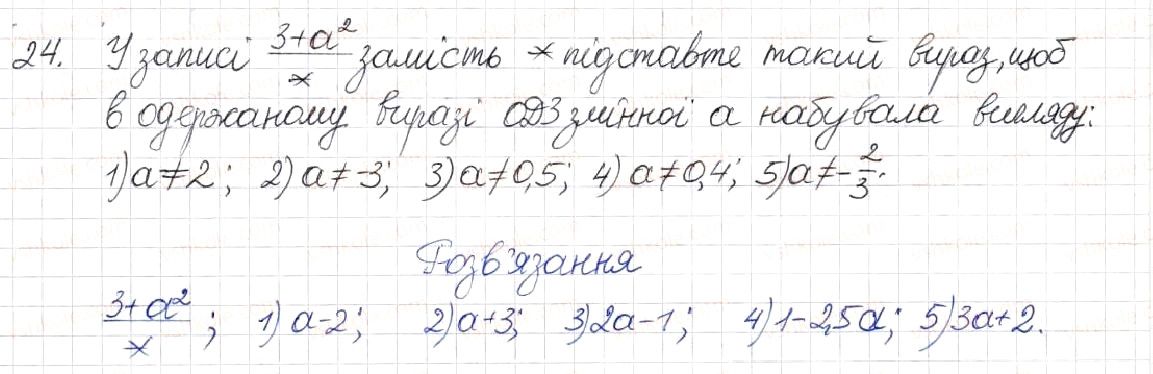 24. У записі (3+a²)/* замість * підставте такий вираз, щоб
в одержаному виразі ОДЗ змінної a набувала вигляду:
1) a≠2; 2) a≠-3; 3) a≠0,5; 4) a≠0,4; 5) a≠-2/3.
Розв'язання
(3+a²)/*; 1) a-2; 2) a+3; 3) 2a-1; 4) 1-2,5a; 5) 3a+2.